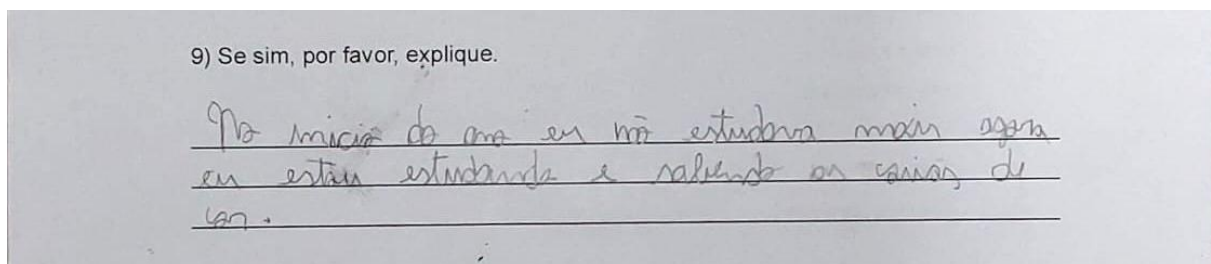 9) Se sim, por favor, explique.
No inicio do ano eu não estudava mais agora
eu estou estudando e sabendo as coisas de
cor.